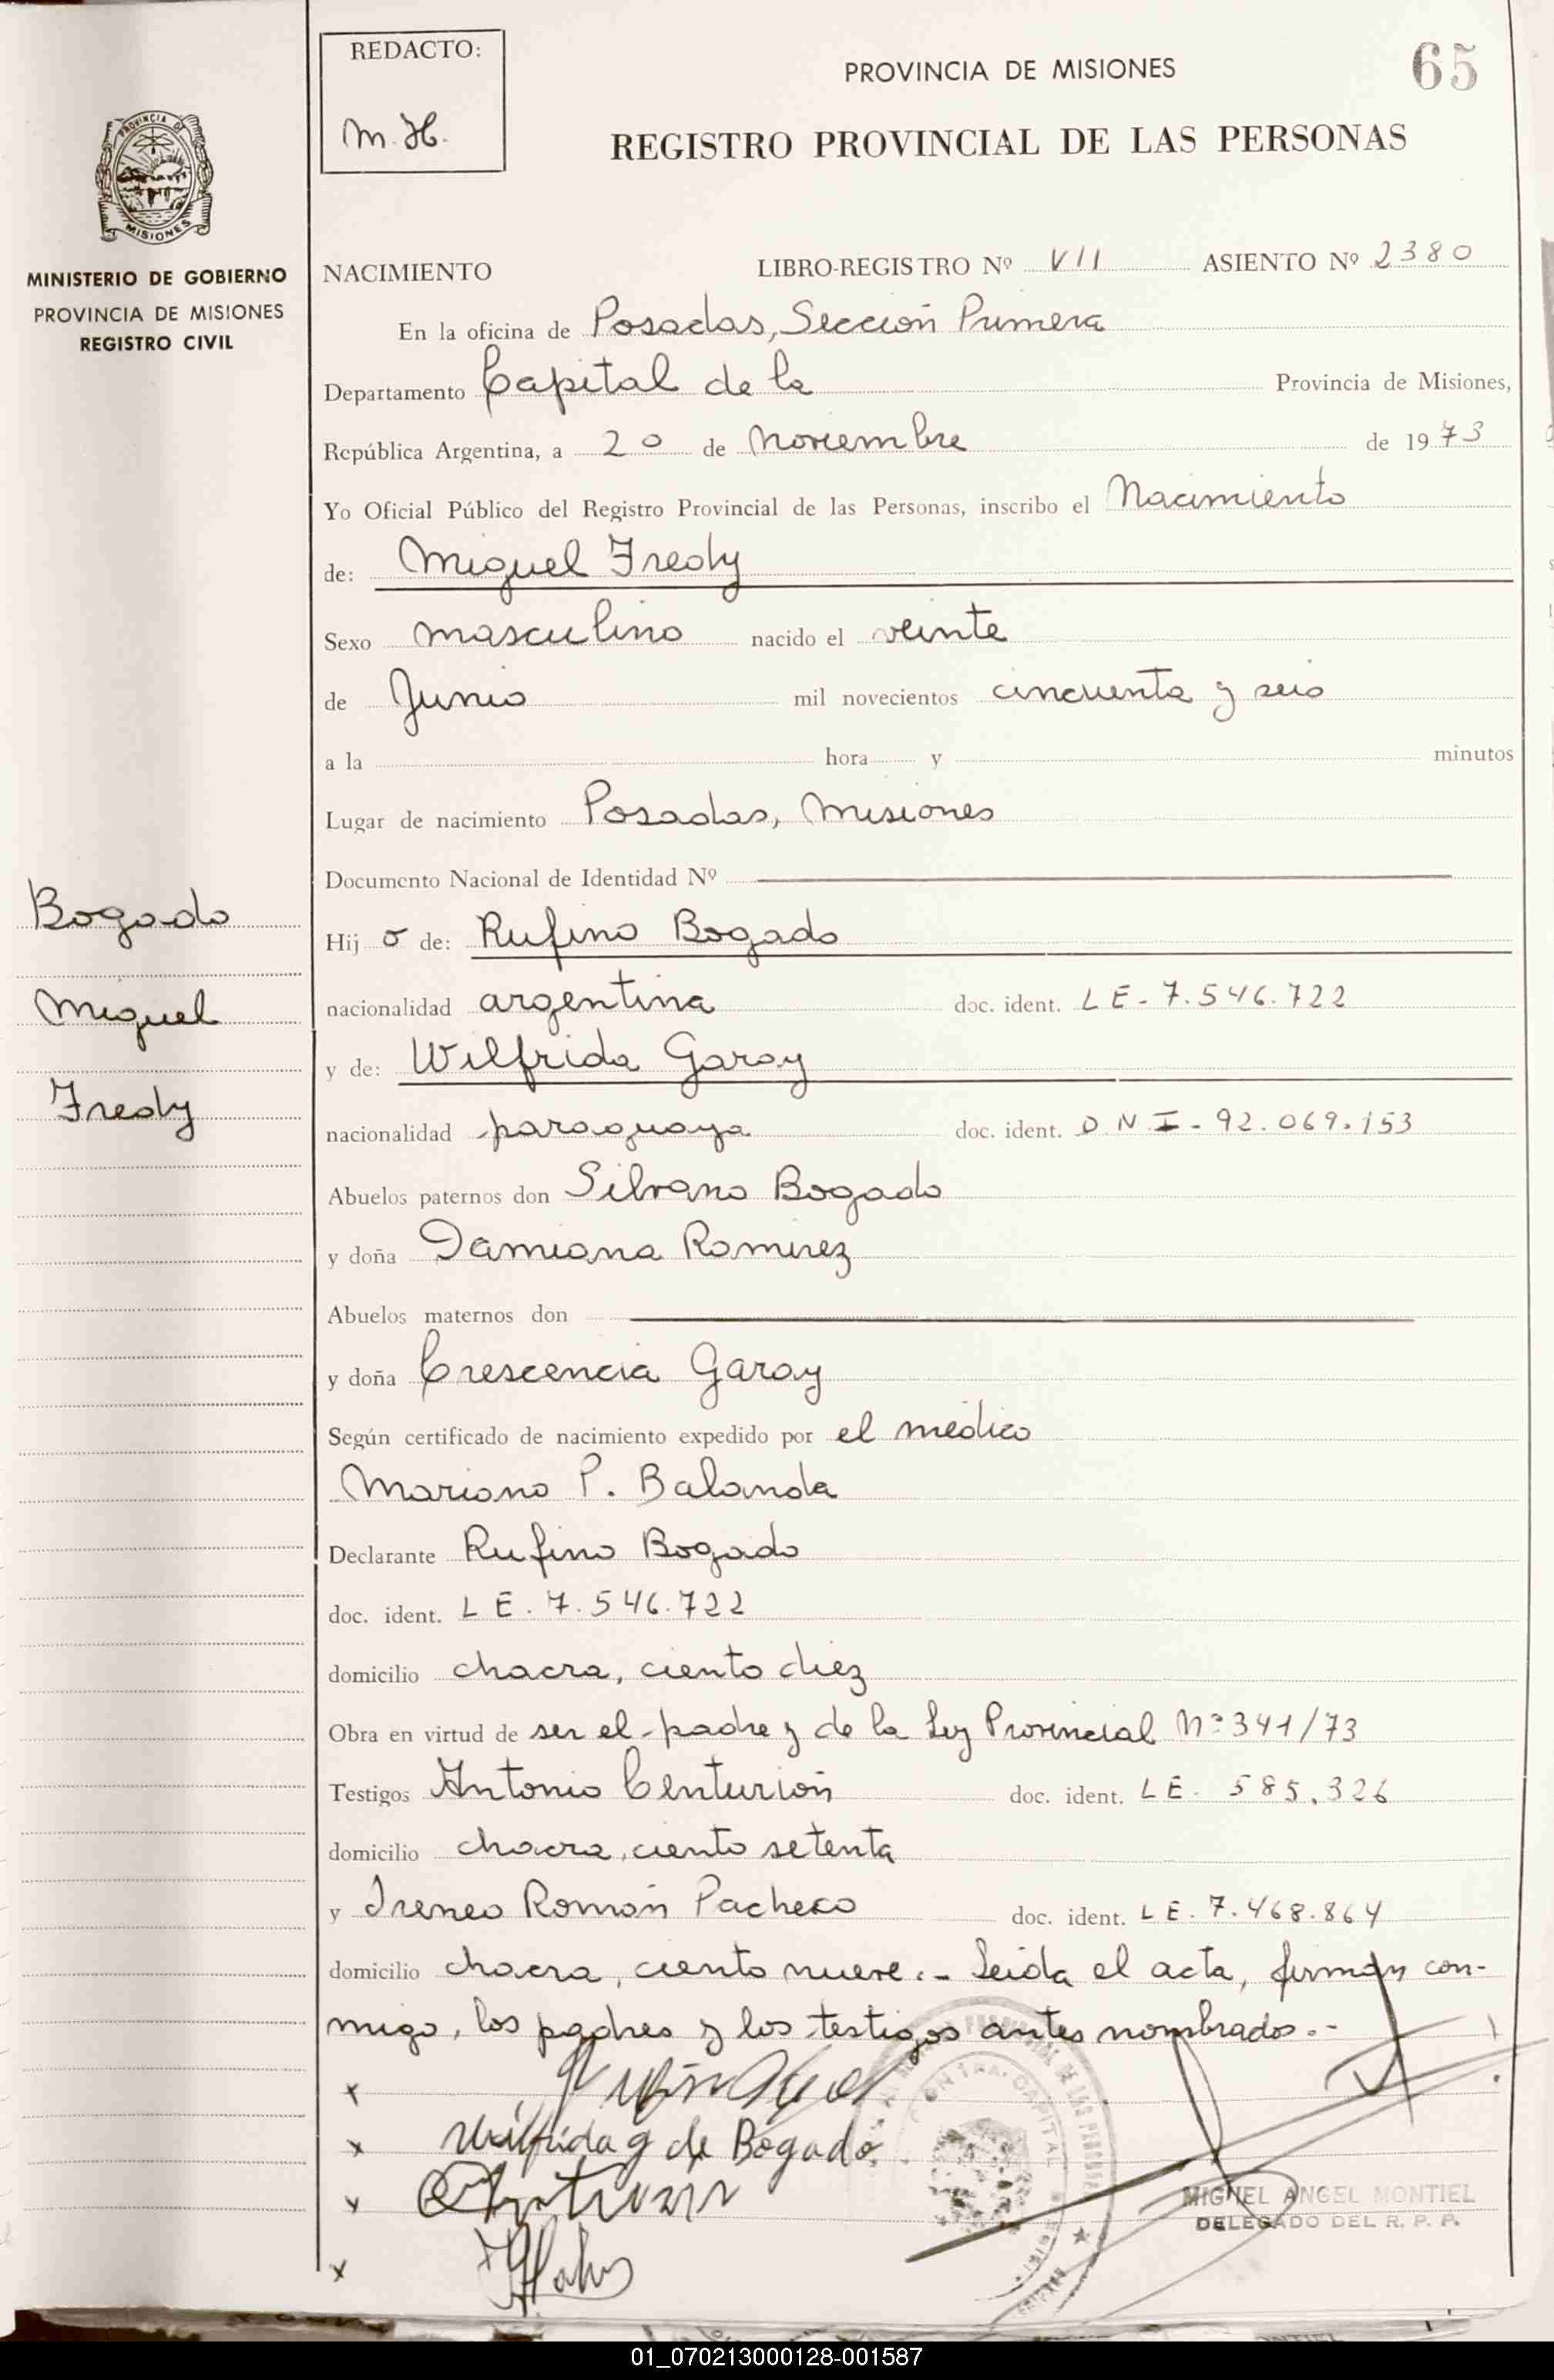 REDACTO:
M. H.
PROVINCIA DE MISIONES
65
REGISTRO PROVINCIAL DE LAS PERSONAS
PROVINCIA DE
MISIONES
MINISTERIO DE GOBIERNO
PROVINCIA DE MISIONES
REGISTRO CIVIL
NACIMIENTO LIBRO-REGISTRO Nº VII ASIENTO Nº 2380
En la oficina de Posadas, Sección Primera
Departamento Capital de la Provincia de Misiones,
República Argentina, a 20 de Noviembre de 1973
Yo Oficial Público del Registro Provincial de las Personas, inscribo el Nacimiento
de: Miguel Fredy
Sexo masculino nacido el veinte
de Junio mil novecientos cincuenta y seis
a la hora y minutos
Lugar de nacimiento Posadas, Misiones
Documento Nacional de Identidad Nº
Bogado
Miguel
Fredy
Hijo de: Rufino Bogado
nacionalidad argentina doc. ident. LE-7.546.722
y de: Wilfrida Garay
nacionalidad paraguaya doc. ident. DNI-92.069.153
Abuelos paternos don Silvano Bogado
y doña Damiana Romirez
Abuelos maternos don
y doña Crescencia Garay
Según certificado de nacimiento expedido por el médico
Mariano P. Balanda
Declarante Rufino Bogado
doc. ident. LE. 7.546.722
domicilio chacra, ciento diez
Obra en virtud de ser el padre y de la Ley Provincial Nº 341/73
Testigos Antonio Centurión doc. ident. LE. 585.326
domicilio chacra, ciento setenta
y Ireneo Román Pacheco doc. ident. LE. 7.468.864
domicilio chacra, ciento nueve.- Leida el acta, firman con-
migo, los padres y los testigos antes nombrados.-
x
x Wilfrida G de Bogado
x
x
MIGUEL ANGEL MONTIEL
DELEGADO DEL R. P. P.
01_070213000128-001587